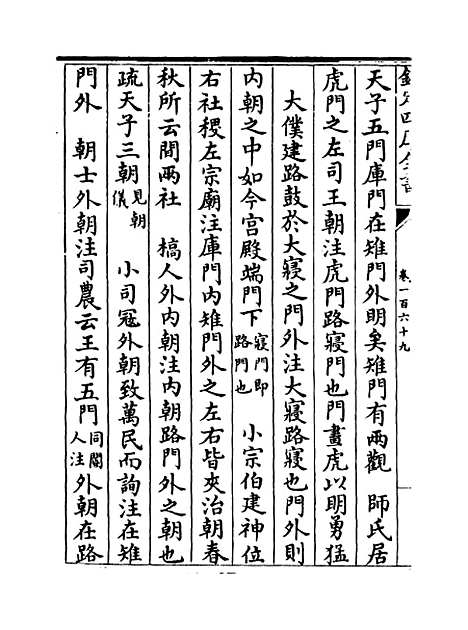 欽定四庫全書
卷一百六十九
天子五門庫門在雉門外明矣雉門有兩觀　師氏居
虎門之左司王朝注虎門路寢門也門畫虎以明勇猛
大僕建路鼓於大寢之門外注大寢路寢也門外則
內朝之中如今宮殿端門下寢門即路門也　小宗伯建神位
右社稷左宗廟注庫門內雉門外之左右皆夾治朝春
秋所云間兩社　槁人外內朝注內朝路門外之朝也
疏天子三朝見朝儀　小司冦外朝致萬民而詢注在雉
門外　朝士外朝注司農云王有五門同閽人注外朝在路